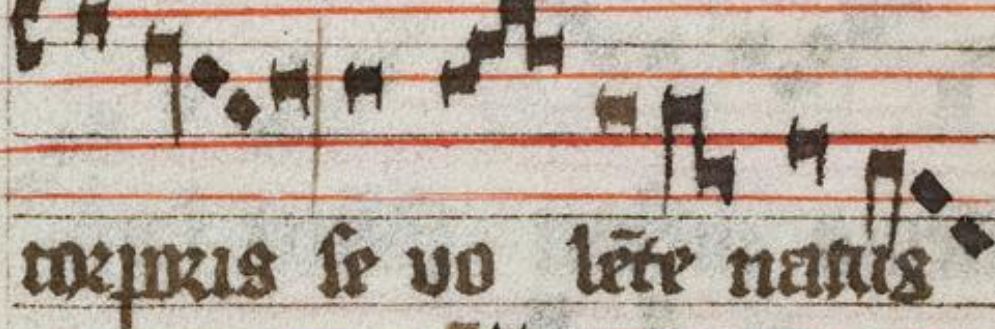 corporis se vo lēte natus